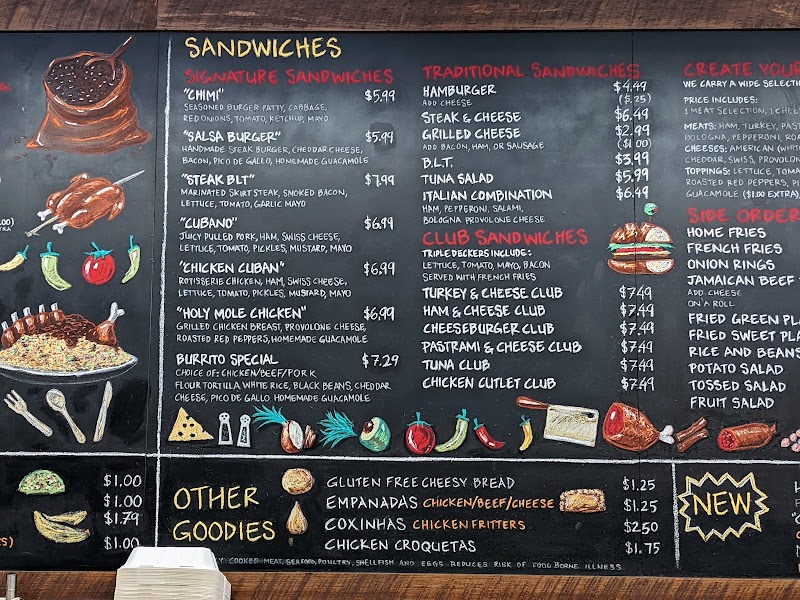 SANDWICHES
SIGNATURE SANDWICHES
"CHIMI" $5.99
SEASONED BURGER PATTY, CABBAGE,
RED ONIONS, TOMATO, KETCHUP, MAYO
"SALSA BURGER" $5.99
HANDMADE STEAK BURGER, CHEDDAR CHEESE,
BACON, PICO DE GALLO, HOMEMADE GUACAMOLE
"STEAK BLT" $7.99
MARINATED SKIRT STEAK, SMOKED BACON,
LETTUCE, TOMATO, GARLIC MAYO
"CUBANO" $6.99
JUICY PULLED PORK, HAM, SWISS CHEESE,
LETTUCE, TOMATO, PICKLES, MUSTARD, MAYO
"CHICKEN CUBAN" $6.99
ROTISSERIE CHICKEN, HAM, SWISS CHEESE,
LETTUCE, TOMATO, PICKLES, MUSTARD, MAYO
"HOLY MOLE CHICKEN" $6.99
GRILLED CHICKEN BREAST, PROVOLONE CHEESE,
ROASTED RED PEPPERS, HOMEMADE GUACAMOLE
BURRITO SPECIAL $7.29
CHOICE OF: CHICKEN/BEEF/PORK
FLOUR TORTILLA WHITE RICE, BLACK BEANS, CHEDDAR
CHEESE, PICO DE GALLO HOMEMADE GUACAMOLE
TRADITIONAL SANDWICHES
HAMBURGER $4.49
ADD CHEESE ($.25)
STEAK & CHEESE $6.49
GRILLED CHEESE $2.99
ADD BACON, HAM, OR SAUSAGE ($1.00)
B.L.T. $3.99
TUNA SALAD $5.99
ITALIAN COMBINATION $6.49
HAM, PEPPERONI, SALAMI,
BOLOGNA PROVOLONE CHEESE
CLUB SANDWICHES
TRIPLE DECKERS INCLUDE:
LETTUCE, TOMATO, MAYO, BACON
SERVED WITH FRENCH FRIES
TURKEY & CHEESE CLUB $7.49
HAM & CHEESE CLUB $7.49
CHEESEBURGER CLUB $7.49
PASTRAMI & CHEESE CLUB $7.49
TUNA CLUB $7.49
CHICKEN CUTLET CLUB $7.49
CREATE YOUR
WE CARRY A WIDE SELECTI
PRICE INCLUDES:
1 MEAT SELECTION, 1 CHEE
MEATS: HAM, TURKEY, PAST
BOLOGNA, PEPPERONI, ROA
CHEESES: AMERICAN (WHIT
CHEDDAR, SWISS, PROVOLON
TOPPINGS: LETTUCE, TOMAT
ROASTED RED PEPPERS, PI
GUACAMOLE ($1.00 EXTRA)
SIDE ORDER
HOME FRIES
FRENCH FRIES
ONION RINGS
JAMAICAN BEEF
ADD CHEESE
ON A ROLL
FRIED GREEN PLA
FRIED SWEET PLA
RICE AND BEANS
POTATO SALAD
TOSSED SALAD
FRUIT SALAD
$1.00
$1.00
$1.79
$1.00
OTHER
GOODIES
GLUTEN FREE CHEESY BREAD $1.25
EMPANADAS CHICKEN/BEEF/CHEESE $1.25
COXINHAS CHICKEN FRITTERS $2.50
CHICKEN CROQUETAS $1.75
NEW
COOKED MEAT, SEAFOOD, POULTRY, SHELLFISH AND EGGS REDUCES RISK OF FOOD BORNE ILLNESS